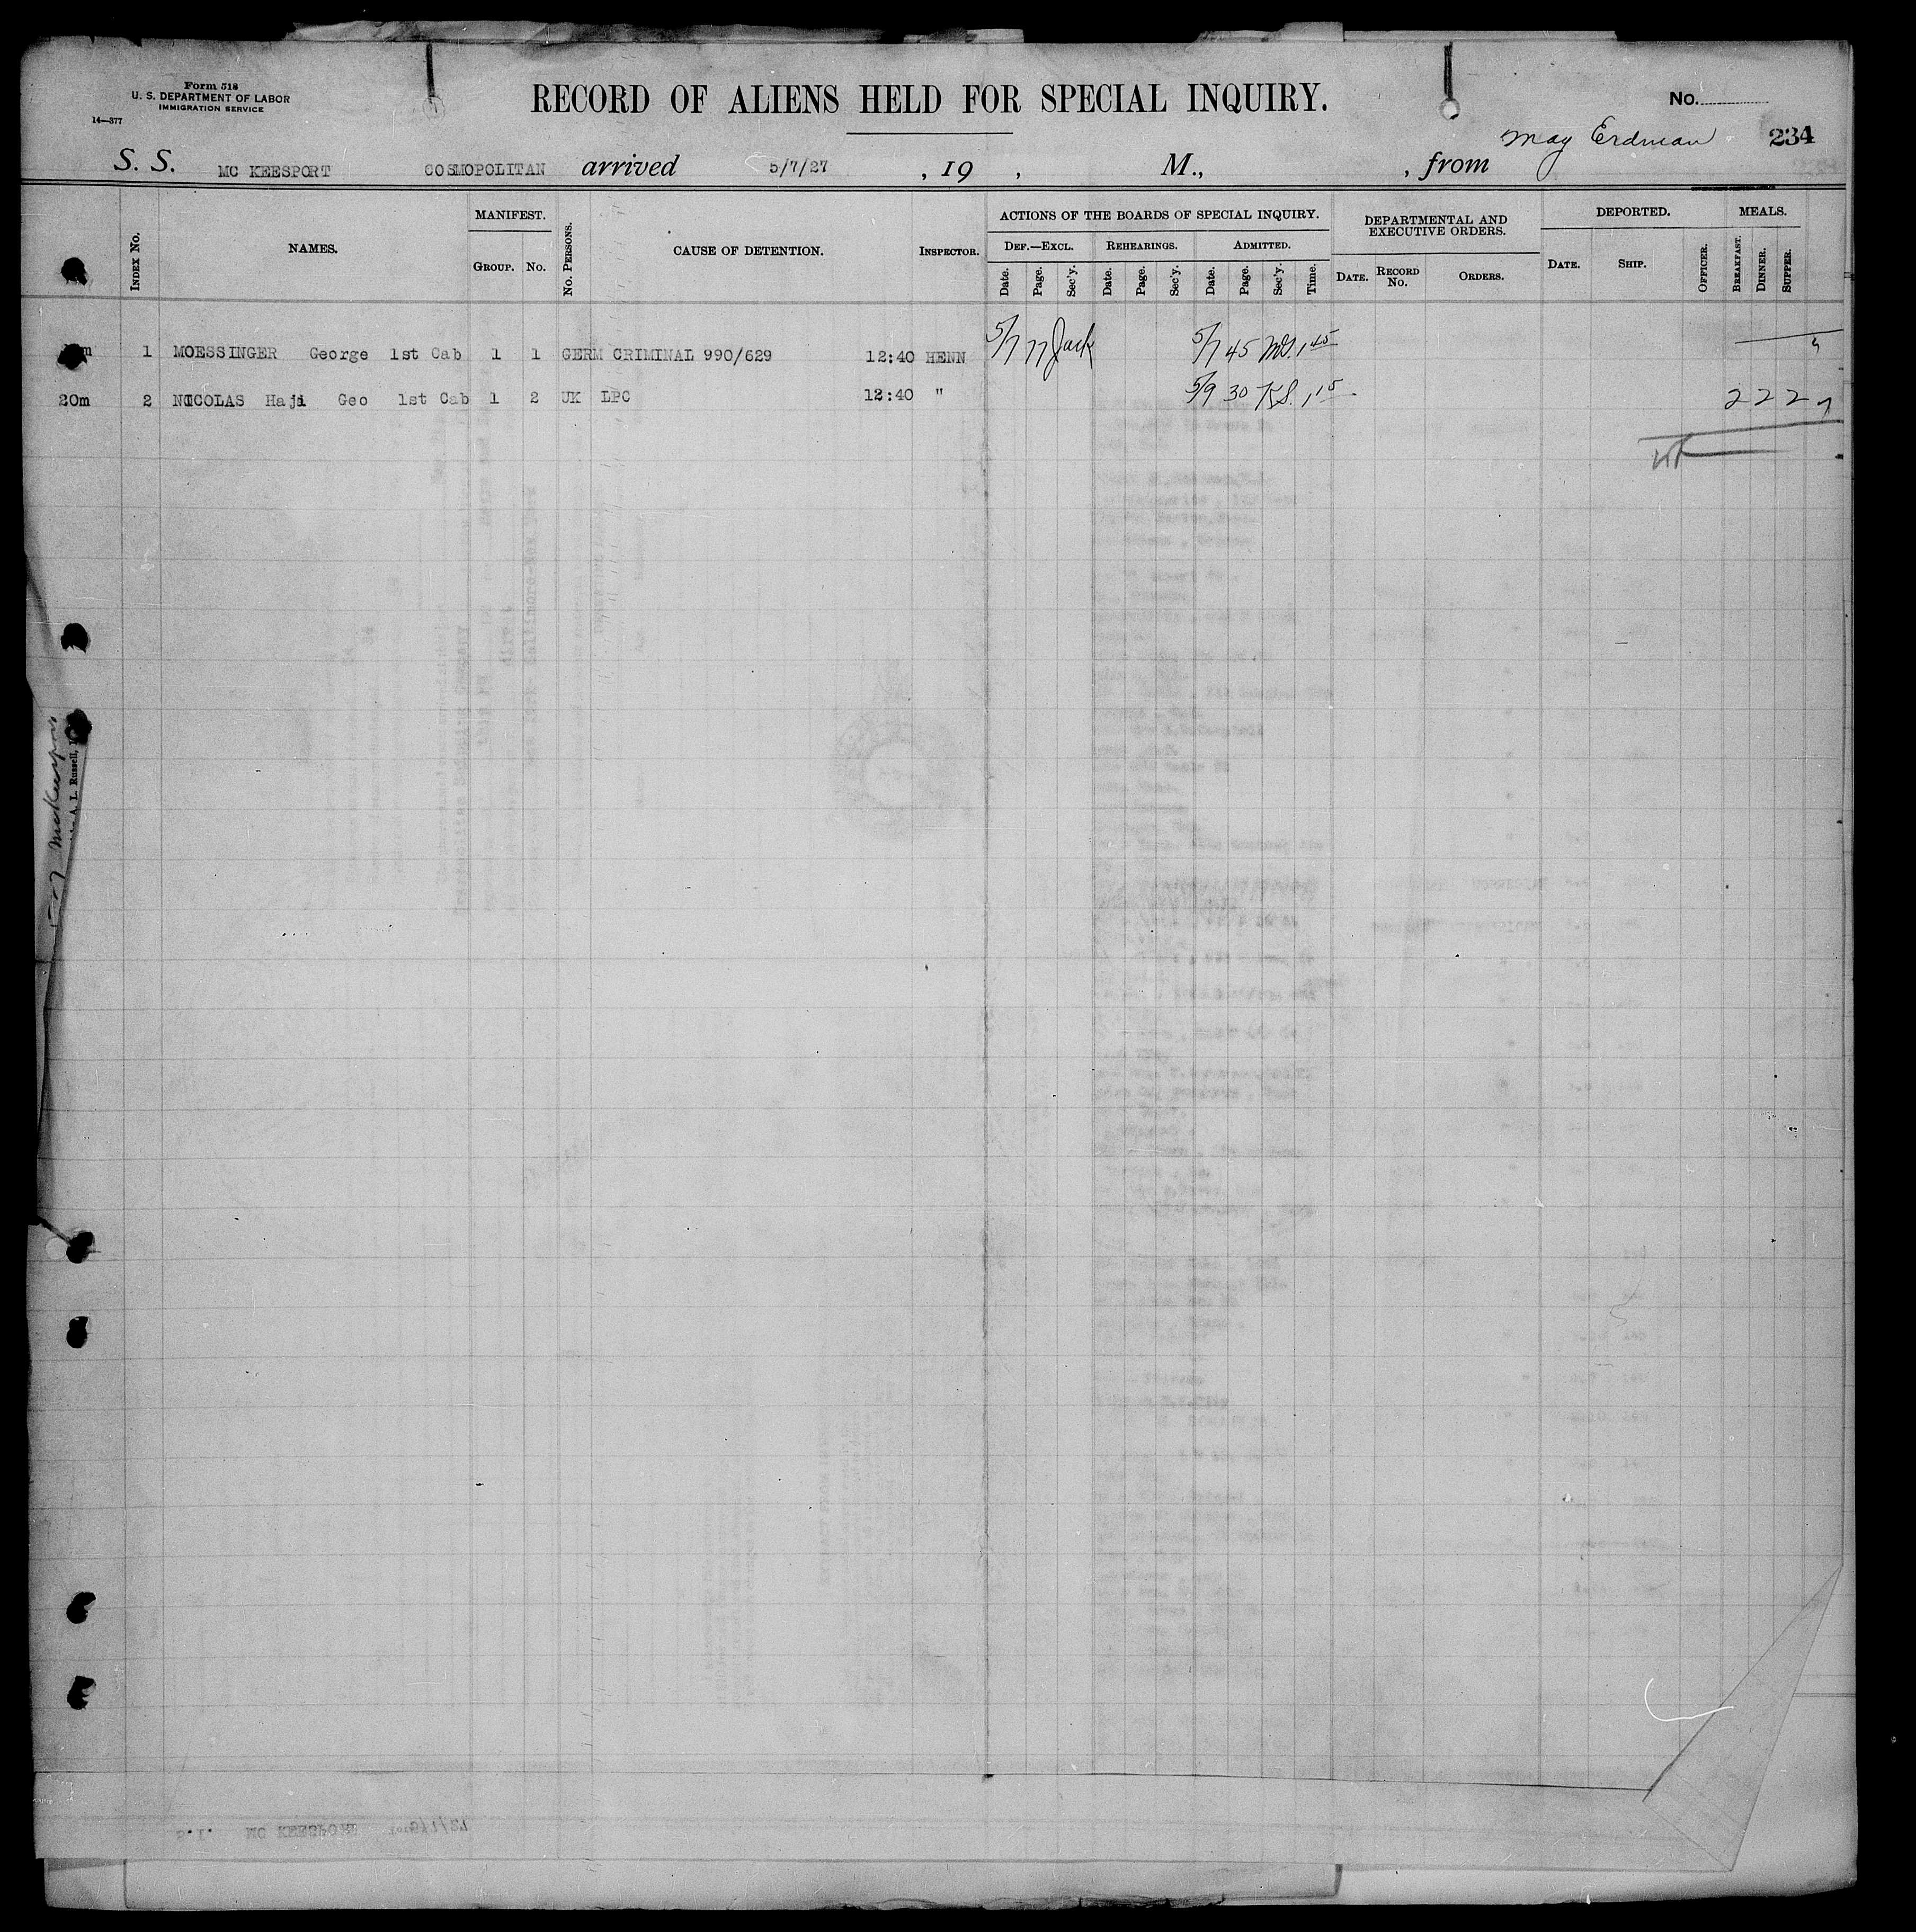 Form 518
U. S. DEPARTMENT OF LABOR
IMMIGRATION SERVICE
14—377
RECORD OF ALIENS HELD FOR SPECIAL INQUIRY.
No.
May Erdman 234
S. S. MC KEESPORT COSMOPOLITAN arrived 5/7/27 , 19 , M., , from
Index No. NAMES. MANIFEST. Group. No. No. Persons. CAUSE OF DETENTION. Inspector. ACTIONS OF THE BOARDS OF SPECIAL INQUIRY. DEPARTMENTAL AND EXECUTIVE ORDERS. DEPORTED. MEALS.
Def.—Excl. Rehearings. Admitted.
Date. Page. Sec'y. Date. Page. Sec'y. Date. Page. Sec'y. Time. Date. Record No. Orders. Date. Ship. Officer. Breakfast. Dinner. Supper.
1 MOESSINGER George 1st Cab 1 1 GERM CRIMINAL 990/629 12:40 HENN 5/7 77 Jack 5/7 45 1 45
20m 2 NICOLAS Haji Geo 1st Cab 1 2 UK LPC 12:40 " 5/9 30 KS. 1 15 2 2 2
5-7 McKeesport
A. L. Russell,
S.I. MC KEESPORT